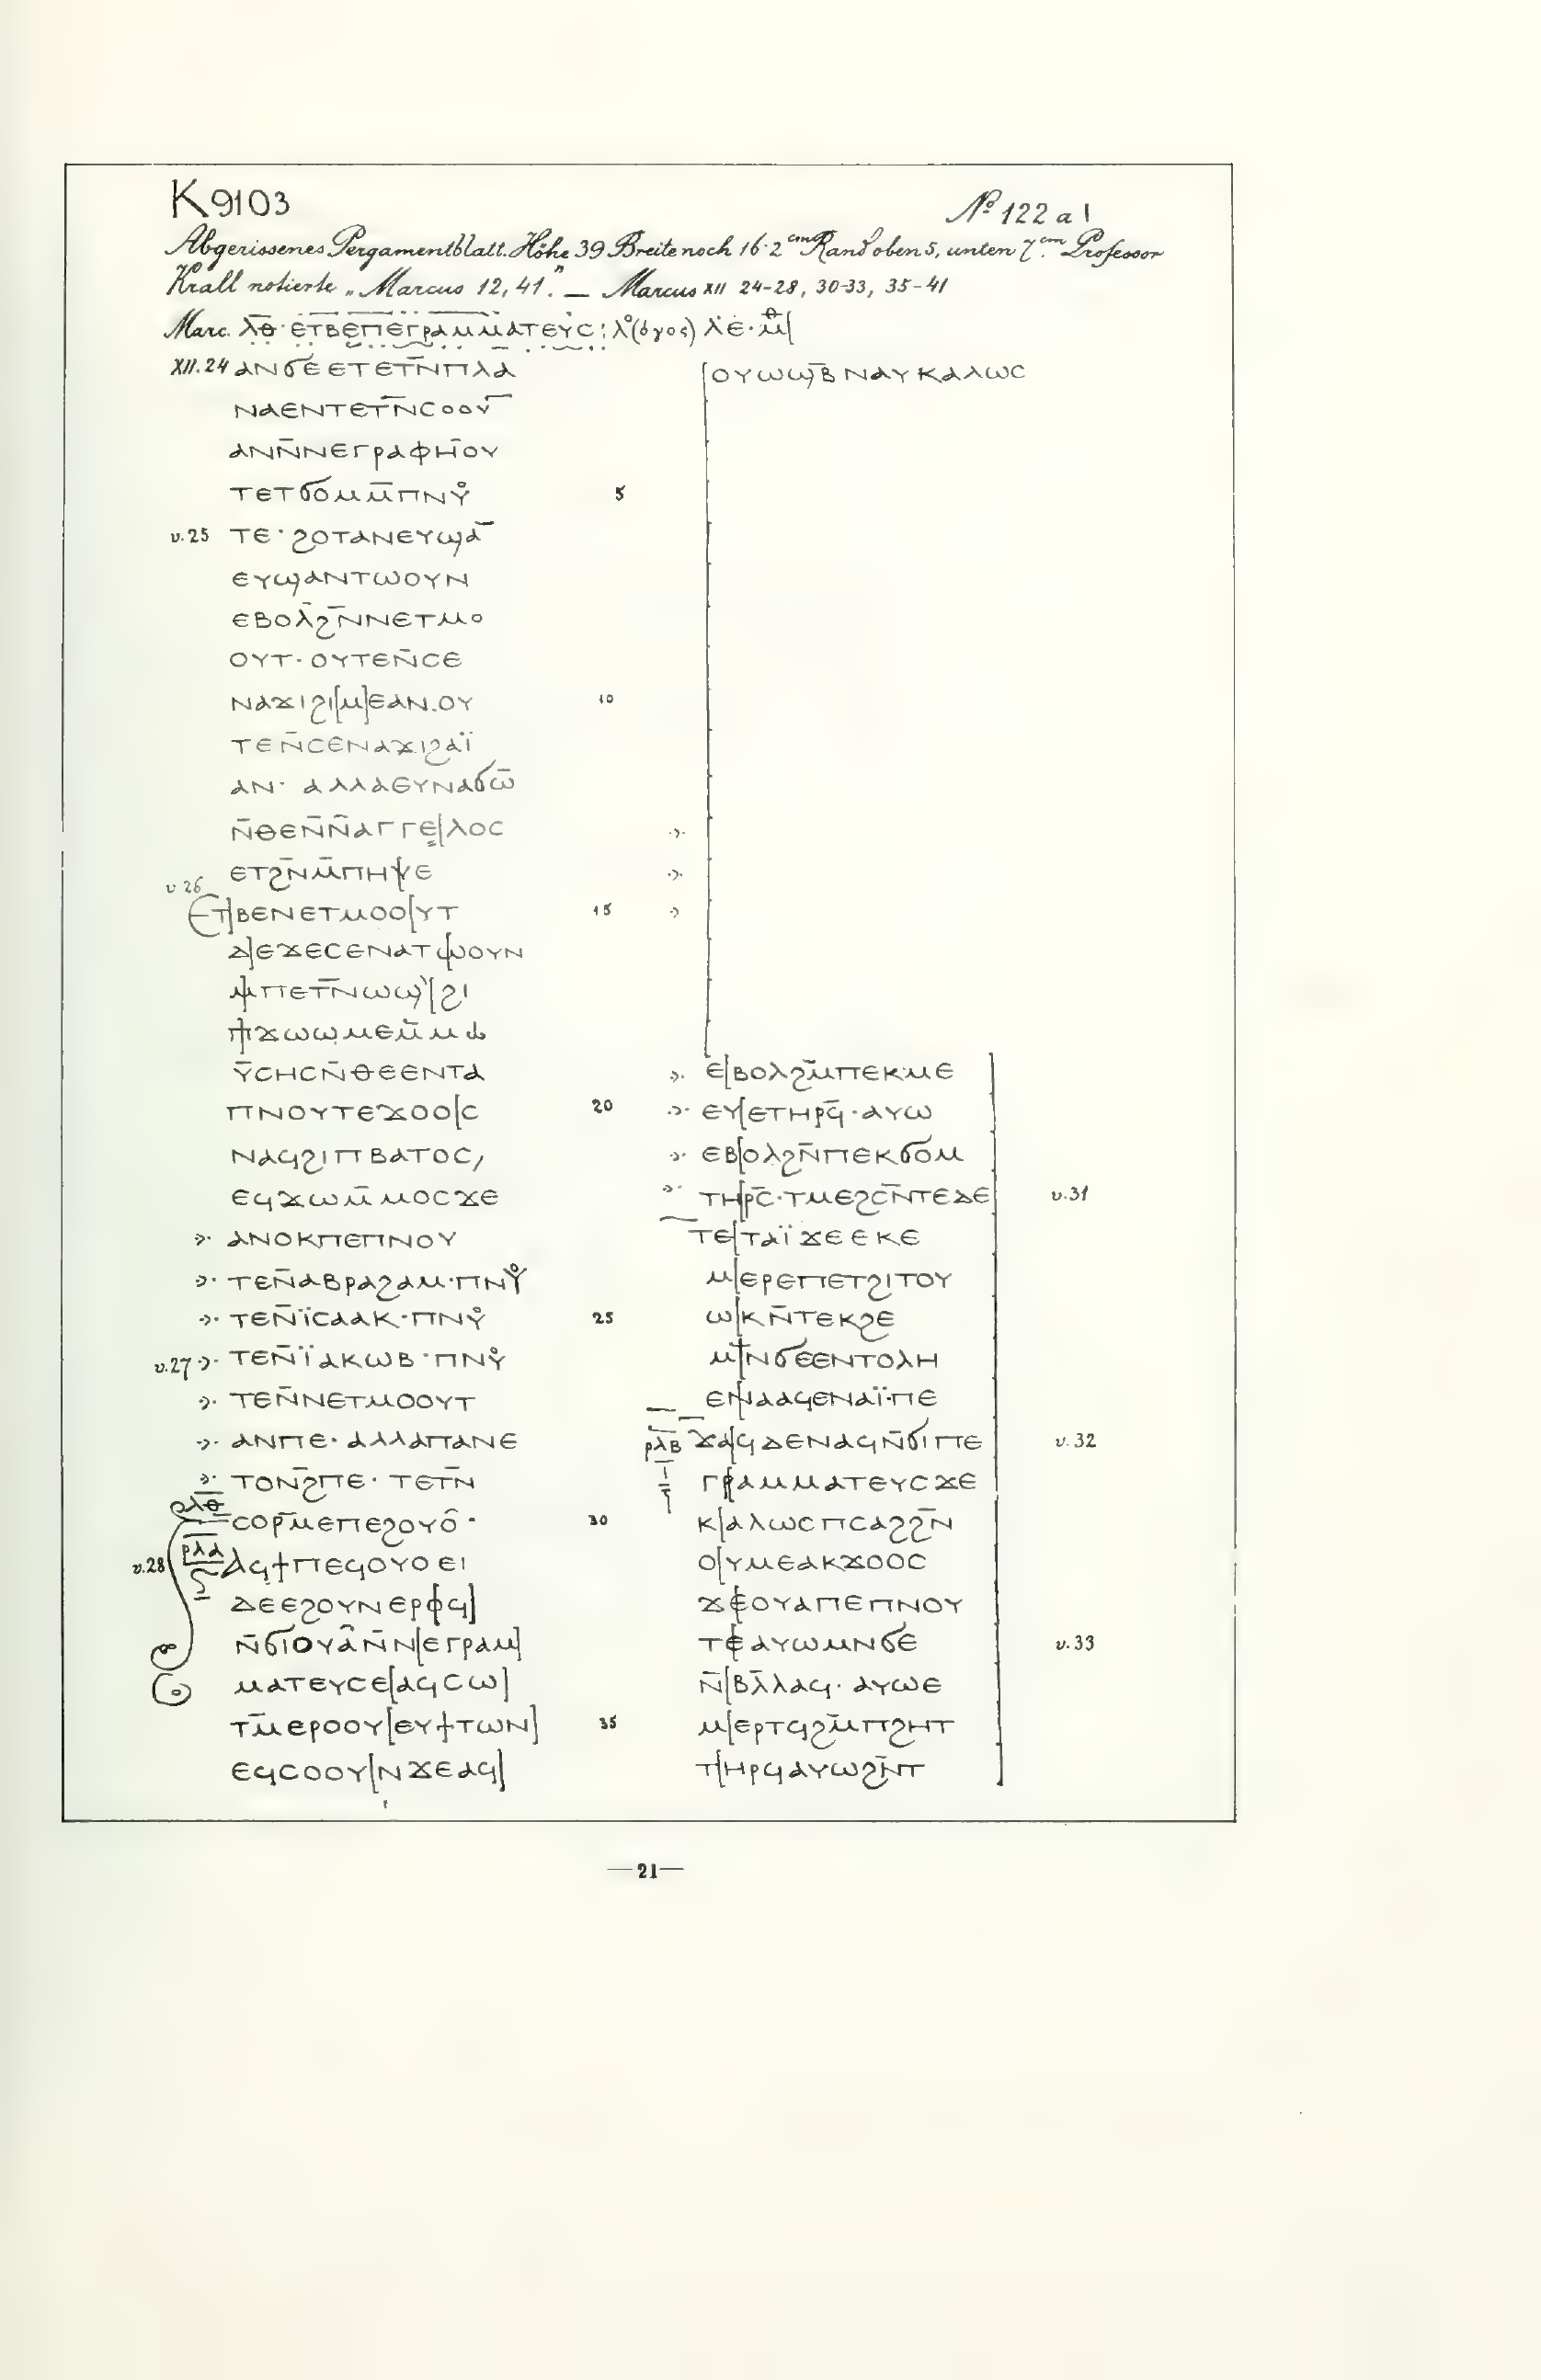 K 9103
No 122 a 1
Abgerissenes Pergamentblatt. Höhe 39 Breite noch 16·2 cm Rand oben 5, unten 7 cm. Professor
Krall notierte „Marcus 12, 41." — Marcus XII 24-28, 30-33, 35-41
Marc. ⲗ̅ⲑ̅· ⲉⲧⲃⲉⲡⲉⲅⲣⲁⲙⲙⲁⲧⲉⲩⲥ : ⲗº(όγος) ⲗ̈ⲉ̈·
XII. 24 ⲁⲛϭⲉⲉⲧⲉⲧⲛ̅ⲡⲗⲁ
ⲛⲁⲉⲛⲧⲉⲧⲛ̅ⲥⲟⲟⲩ̅
ⲁⲛⲛ̅ⲛⲉⲅⲣⲁⲫⲏⲟⲩ
ⲧⲉⲧϭⲟⲙⲙ̅ⲡⲛⲩ° 5
v. 25 ⲧⲉ· ϩⲟⲧⲁⲛⲉⲩϣⲁ̅
ⲉⲩϣⲁⲛⲧⲱⲟⲩⲛ
ⲉⲃⲟⲗϩⲛ̅ⲛⲉⲧⲙⲟ
ⲟⲩⲧ· ⲟⲩⲧⲉⲛ̅ⲥⲉ
ⲛⲁϫⲓϩⲓ[ⲙ]ⲉⲁⲛ.ⲟⲩ 10
ⲧⲉⲛ̅ⲥⲉⲛⲁϫⲓϩⲁⲓ̈
ⲁⲛ· ⲁⲗⲗⲁⲉⲩⲛⲁϭⲱ̅
ⲛ̅ⲑⲉⲛ̅ⲛ̅ⲁⲅⲅⲉ|ⲗⲟⲥ
ⲉⲧϩⲛ̅ⲙ̅ⲡⲏⲩⲉ
v 26
ⲉⲧ|ⲃⲉⲛⲉⲧⲙⲟⲟ|ⲩⲧ 15
ⲇ|ⲉϫⲉⲥⲉⲛⲁⲧⲱⲟⲩⲛ
ⲙⲡⲉⲧⲛ̅ⲱϣ|ϩⲓ
ⲡϫⲱⲱⲙⲉⲙ̅ⲙⲱ
ⲩ̅ⲥⲏⲥⲛ̅ⲑⲉⲉⲛⲧⲁ
ⲡⲛⲟⲩⲧⲉϫⲟⲟ|ⲥ 20
ⲛⲁϥϩⲓⲡⲃⲁⲧⲟⲥ,
ⲉϥϫⲱⲙ̅ⲙⲟⲥϫⲉ
ⲁⲛⲟⲕⲡⲉⲡⲛⲟⲩ
ⲧⲉⲛ̅ⲁⲃⲣⲁϩⲁⲙ·ⲡⲛⲩ°
ⲧⲉⲛ̅ⲓ̈ⲥⲁⲁⲕ·ⲡⲛⲩ° 25
v. 27 ⲧⲉⲛ̅ⲓ̈ⲁⲕⲱⲃ·ⲡⲛⲩ°
ⲧⲉⲛ̅ⲛⲉⲧⲙⲟⲟⲩⲧ
ⲁⲛⲡⲉ· ⲁⲗⲗⲁⲡⲁⲛⲉ
ⲧⲟⲛϩ̅ⲡⲉ· ⲧⲉⲧⲛ̅
ⲣⲗⲑ
ⲥⲟⲣⲙ̅ⲉⲡⲉϩⲟⲩⲟ̂· 30
v. 28 ⲣⲗⲁ ⲁϥϯⲡⲉϥⲟⲩⲟⲉⲓ
ⲇⲉⲉϩⲟⲩⲛⲉⲣⲟ[ϥ]
ⲛ̅ϭⲓⲟⲩⲁ̂ⲛ̅ⲛ[ⲉⲅⲣⲁⲙ]
ⲙⲁⲧⲉⲩⲥⲉ[ⲁϥⲥⲱ]
ⲧⲙ̅ⲉⲣⲟⲟⲩ[ⲉⲩϯⲧⲱⲛ] 35
ⲉϥⲥⲟⲟⲩ[ⲛϫⲉⲁϥ]
[ⲟⲩⲱϣ̅ⲃ ⲛⲁⲩ ⲕⲁⲗⲱⲥ
ⲉ|ⲃⲟⲗϩⲙ̅ⲡⲉⲕⲙⲉ
ⲉⲩ|ⲉⲧⲏⲣϥ̅·ⲁⲩⲱ
ⲉⲃ|ⲟⲗϩⲛ̅ⲡⲉⲕϭⲟⲙ
ⲧⲏ|ⲣⲥ̅·ⲧⲙⲉϩⲥⲛ̅ⲧⲉⲇⲉ v. 31
ⲧⲉ|ⲧⲁⲓ̈ϫⲉⲉⲕⲉ
ⲙ|ⲉⲣⲉⲡⲉⲧϩⲓⲧⲟⲩ
ⲱ|ⲕⲛ̅ⲧⲉⲕϩⲉ
ⲙ|ⲛϭⲉⲉⲛⲧⲟⲗⲏ
ⲉⲛⲁⲁϥⲉⲛⲁⲓ̈·ⲡⲉ
ⲣⲗⲃ ϫⲁϥⲇⲉⲛⲁϥⲛ̅ϭⲓⲡⲉ v. 32
ⲅⲣⲁⲙⲙⲁⲧⲉⲩⲥϫⲉ
ⲕ|ⲁⲗⲱⲥⲡⲥⲁϩϩⲛ̅
ⲟ|ⲩⲙⲉⲁⲕϫⲟⲟⲥ
ϫⲉⲟⲩⲁⲡⲉⲡⲛⲟⲩ
ⲧⲉⲁⲩⲱⲙⲛϭⲉ v. 33
ⲛ̅|ⲃⲗ̅ⲗⲁϥ· ⲁⲩⲱⲉ
ⲙ|ⲉⲣⲧϥϩⲙ̅ⲡϩⲏⲧ
ⲧ|ⲏⲣϥⲁⲩⲱϩⲛ̅ⲧ
—21—